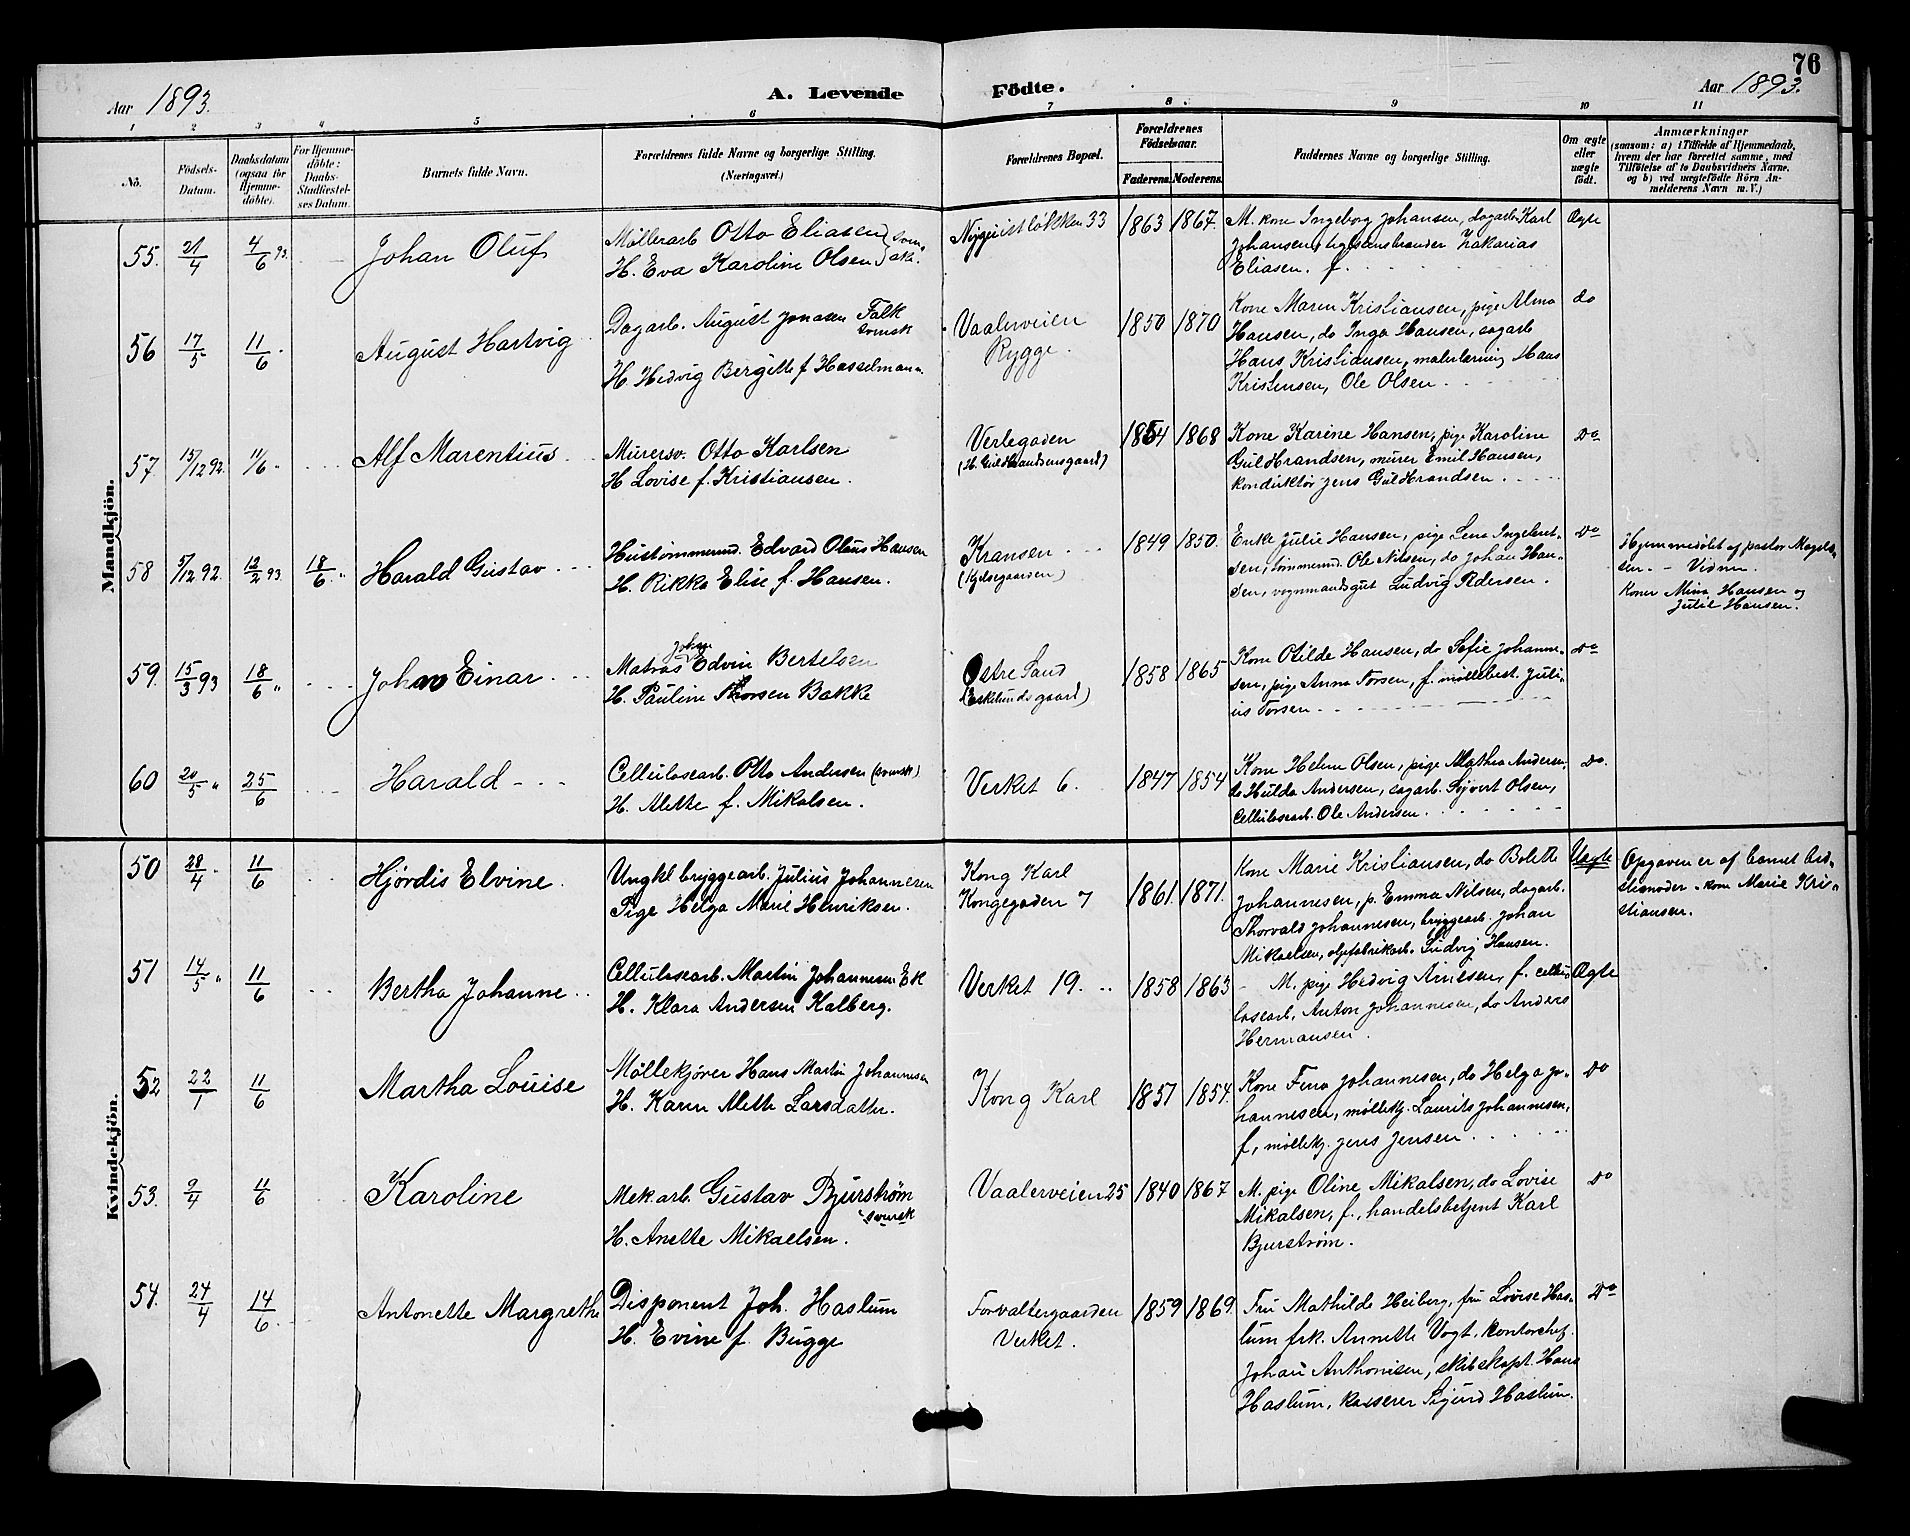 76
Aar 1893.
A. Levende Födte.
Aar 1893.
1 2 3 4 5 6 7 8 9 10 11
No.
Födsels-
Datum.
Daabsdatum
(ogsaa for
Hjemme-
döbte).
For Hjemme-
döbte:
Daabs-
Stadfæstel-
ses Datum.
Barnets fulde Navn.
Forældrenes fulde Navne og borgerlige Stilling.
(Næringsvei.)
Forældrenes Bopæl.
Forældrenes
Födselsaar.
Faderens. Moderens.
Faddernes Navne og borgerlige Stilling.
Om ægte
eller
uægte
födt.
Anmærkninger
(saasom: a) i Tilfælde af Hjemmedaab,
hvem der har forrettet samme, med
Tilföielse af to Daabsvidners Navne,
og b) ved uægtefödte Börn An-
melderens Navn m. V.)
Mandkjön.
55. 21/4 4/6 93. Johan Oluf
Møllerarb Otto Eliasen
H. Eva Karoline Olsen
1863 1867.
M. kone Ingeborg Johansen, dagarb Karl
Johansen, Zakarias
Eliasen. f.
Ægte
56 17/5 11/6 August Hartvig
Dagarb. August Jonasen Falk
svensk
H. Hedvig Bergitte f Hasselmann.
Vaalerveien
Rygge.
1850 1870
Kone Maren Kristiansen, pige Alma
Hansen, do Inga Hansen, sagarb
Hans Kristiansen, malerlærling Hans
Kristensen, Ole Olsen.
do
57. 15/12 92. 11/6 " Alf Marentius
Murersv. Otto Karlsen
H. Lovise f. Kristiansen.
Verlegaden
(H. Guldbrandsensgaard)
1854 1868
Kone Karine Hansen, pige Karoline
Guldbrandsen, murer Emil Hansen,
konduktør Jens Guldbrandsen.
Do
58 5/12 92. 12/2 93. 18/6 " Harald Gustav
Hustømmermd. Edvard Olaus Hansen
H. Rikka Elise f. Hansen.
Kransen
1849 1850.
Enke Julie Hansen, pige Lena Ingebret-
sen, tømmermd. Ole Nilsen, do Johan Han-
sen, vognmandsgut Ludvig Pedersen.
Do
Hjemmedøbt af pastor Magels-
sen. - Vidner
Koner Mina Hansen og
Julie Hansen.
59. 15/3 93 18/6 " Johan Einar
Johan
Matros Edvin Bertelsen
H. Pauline Thorsen Bakke
Østre Sand
(Esklundsgaard)
1858 1865
Kone Otilde Hansen, do Sofie Johanne-
sen, pige Anna Torsen, f. møllebest. Juli-
us Torsen
Do
60 20/5 " 25/6 Harald
Cellulosearb. Otto Andersen (svensk)
H. Alette f. Mikalsen.
Verket 6.
1847 1854
Kone Helene Olsen, pige Mathea Andersen,
do Hulda Andersen, sagarb. Syvert Olsen,
Cellulosearb. Ole Andersen.
Do.
Kvindekjön.
50 28/4 " 11/6 Hjørdis Elvine.
Ungkl bryggearb. Julius Johannesen
Pige Helga Marie Henriksen.
Kong Karl
Kongegaden 7
1861. 1871.
Kone Marie Kristiansen, do Bolette
Johannesen, p. Emma Nilsen, dagarb.
Thorvald Johannesen, bryggearb. Johan
Mikaelsen, oljefabrikarb. Ludvig Hansen.
Uægte
Opgaven er af barnet bed-
stemoder - kone Marie Kri-
stiansen.
51 14/5 " 11/6 Bertha Johanne
Cellulosearb. Martin Johannesen Ek
H. Klara Andersen Kalberg.
Verket 19.
1858 1863
M. pige Hedvig Arnesen, f. cellu-
losearb. Anton Johannesen, do Anders
Hermansen.
Ægte
52 22/1 11/6 Martha Louise
Møllekjører Hans Martin Johannesen
H. Karen Alette Larsdatter.
Kong Karl
1857 1854.
Kone Fina Johannesen, do Helga Jo-
hannesen, møllekj. Laurits Johannesen,
f, møllekj. Jens Jensen.
Do
53. 9/4 11/6 Karoline
Mek. arb. Gustav Bjurstrøm
svensk
H. Anette Mikaelsen.
Vaalerveien 25
1840 1867
M. pige Oline Mikalsen, do Lovise
Mikalsen, f., handelsbetjent Karl
Bjurstrøm.
Do
54. 24/4 14/6 Antonette Margrethe
Disponent Joh. Haslum
H. Evine f. Bugge
Forvaltergaarden
Verket.
1859 1869.
Fru Mathilde Heiberg, fru Lovise Has-
lum frk. Annette Vogt, kontorchef.
Johan Anthonisen, skibskapt. Hans
Haslum, kasserer Sigurd Haslum.
Do